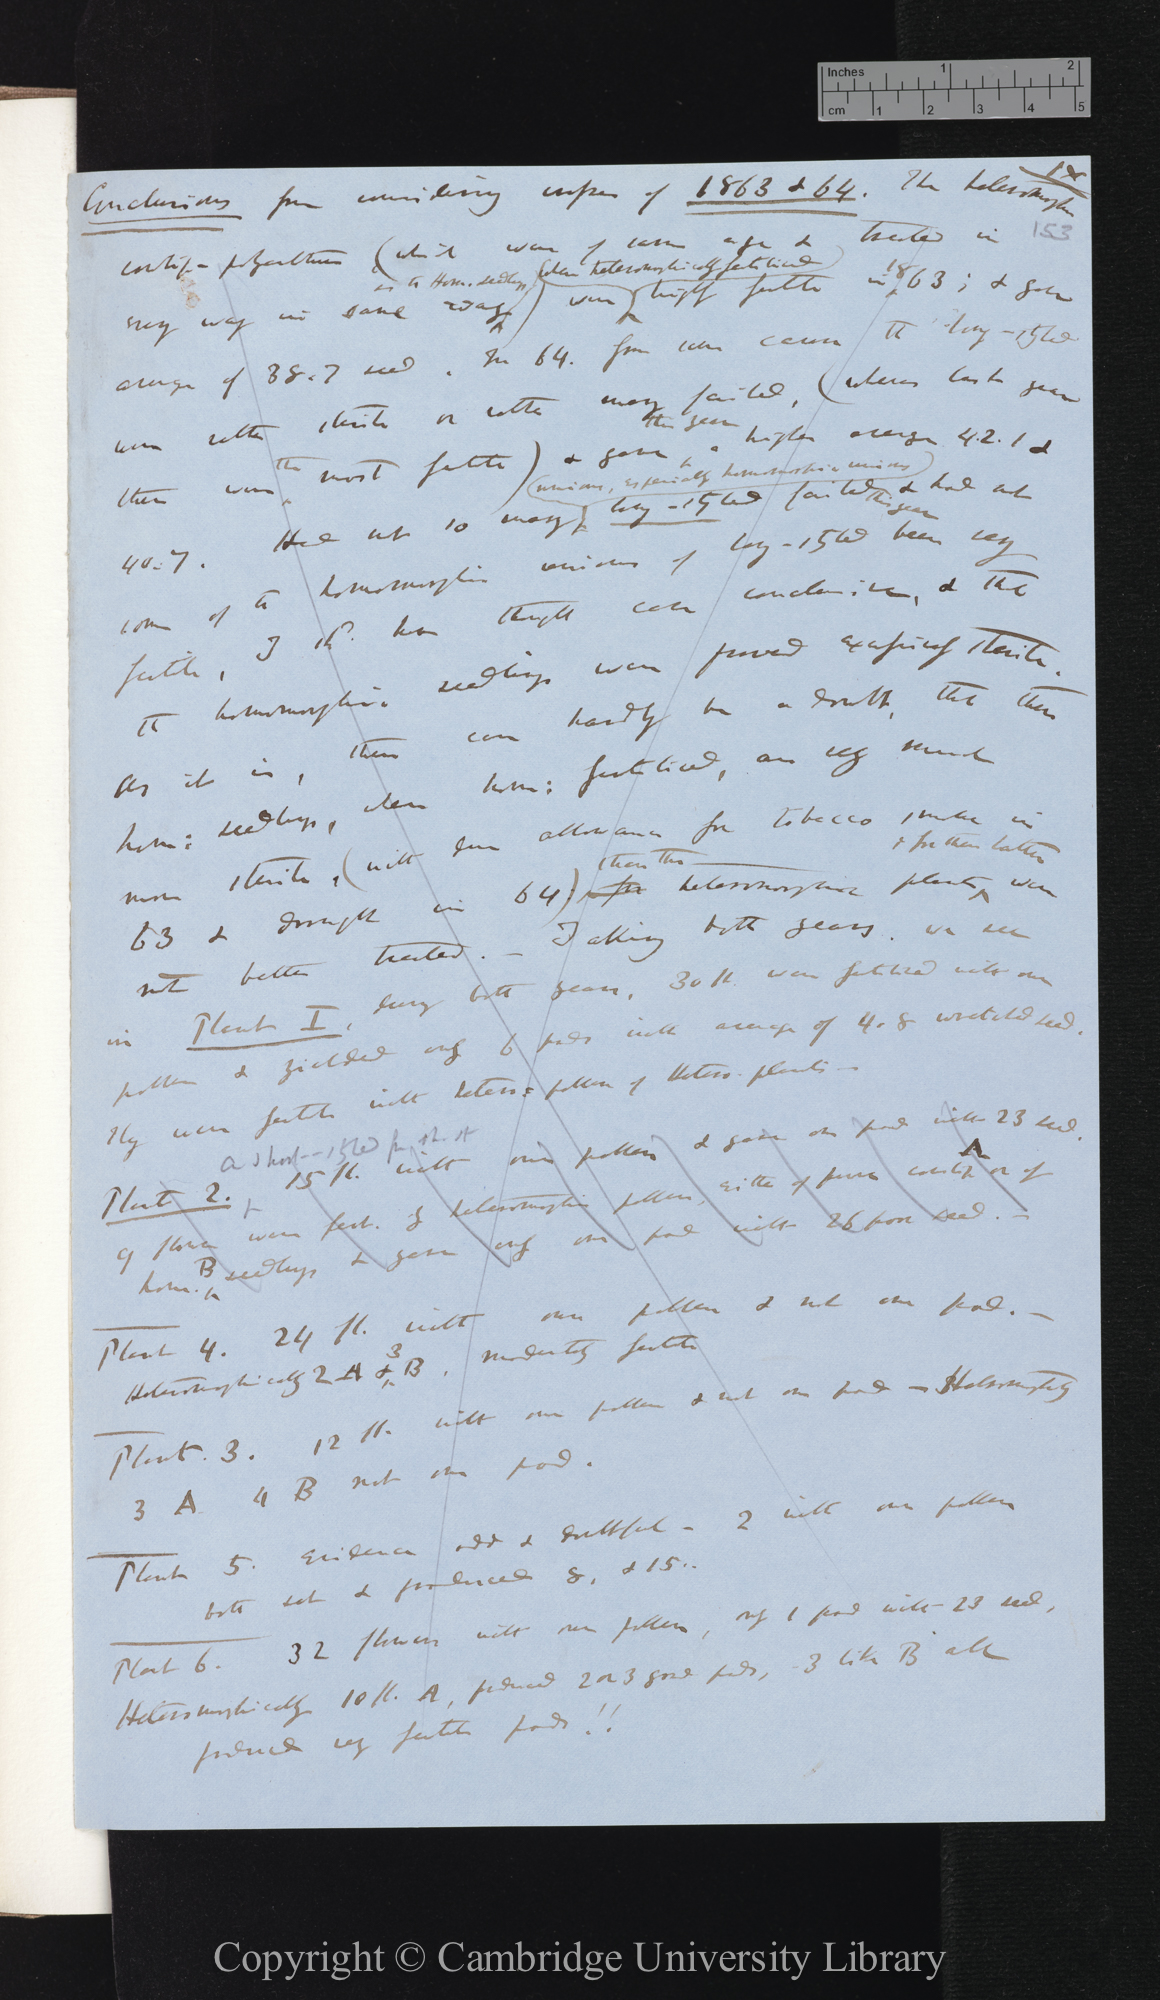 Inches 1 2
cm 1 2 3 4 5
IX
153
Conclusions from considering crosses of 1863 & 64. The heteromorphic
cowslip-polyanthus (which were of same age & treated in
as the Hom. seedlings (when heteromorphically fertilised)
every way in same way) were highly fertile in 1863; & gave
average of 38.7 seed. In 64. from some cause the long-styled
were rather sterile or rather many failed, (whereas last year
this year
they were the most fertile) & gave a higher average 42.1 &
(unions, especially homomorphic unions)
40.7. Had not so many long-styled failed & had not
this year
some of the homomorphic unions of long-styled been very
fertile, I shd. have thought case conclusive, & that
the homomorphic seedlings were proved excessively sterile.
As it is, there can hardly be a doubt, that these
hom: seedlings, when hom: fertilised, are very much
more sterile, (with due allowance for tobacco smoke in
than the & further latter
63 & drought in 64) heteromorphic plants, were
not better treated. — Taking both years. we see
in Plant I, during both years, 30 fl. were fertilised with own
pollen & yielded only 6 pods with average of 4.8 wretched seed.
They were fertile with hetero: pollen of Hetero. plants —
a short-styled
Plant 2. 15 fl. with own pollen & gave one pod with 23 seed.
A
9 flowers were fert. by heteromorphic pollen, either of pure cowslip or of
B
hom. seedlings & gave only one pod with 26 poor seed. —
Plant 4. 24 fl. with own pollen & not one pod. —
Heteromorphically 2 A & 3 B, moderately fertile
Plant. 3. 12 fl. with own pollen & not one pod — Heteromorphically
3 A 4 B not one pod.
Plant 5. Evidence odd & doubtful — 2 with own pollen
both set & produced 8, & 15..
Plant 6. 32 flowers with own pollen, only 1 pod with 23 seed,
Heteromorphically 10 fl. A, produced 2 or 3 good pods, 3 like B all
produced very fertile pods!!
Copyright © Cambridge University Library